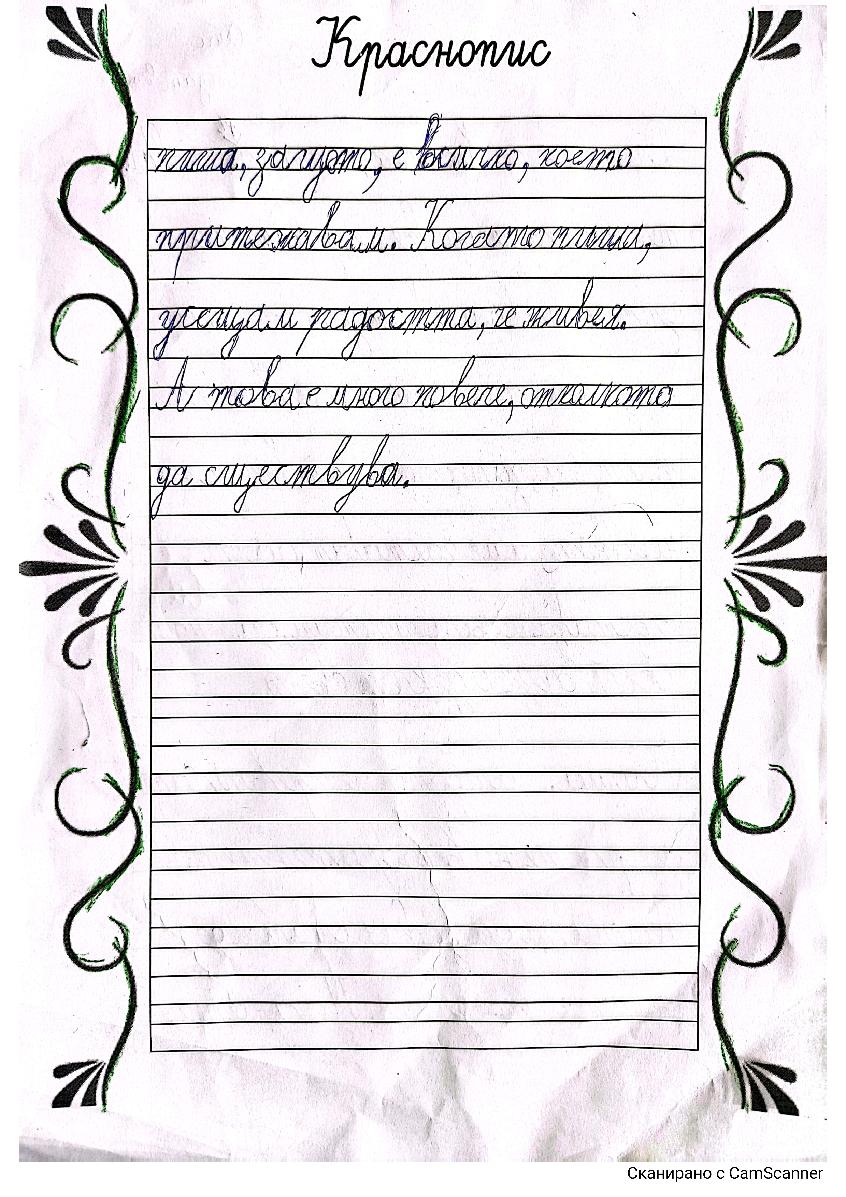 Краснопис
пиша, защото, е всичко, което
притежавам. Когато пиша,
усещам радостта, че живея.
А това е много повече, отколкото
да съществува.
Сканирано с CamScanner